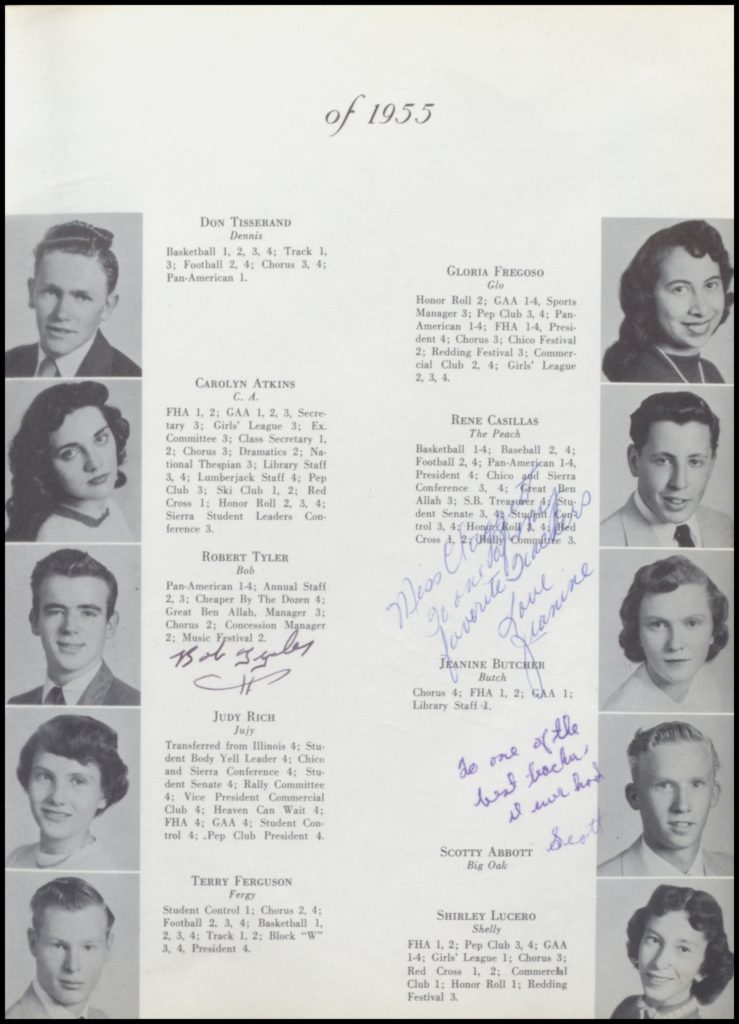 of 1955
DON TISSERAND
Dennis
Basketball 1, 2, 3, 4; Track 1,
3; Football 2, 4; Chorus 3, 4;
Pan-American 1.
CAROLYN ATKINS
C. A.
FHA 1, 2; GAA 1, 2, 3, Secre-
tary 3; Girls' League 3; Ex.
Committee 3; Class Secretary 1,
2; Chorus 3; Dramatics 2; Na-
tional Thespian 3; Library Staff
3, 4; Lumberjack Staff 4; Pep
Club 3; Ski Club 1, 2; Red
Cross 1; Honor Roll 2, 3, 4;
Sierra Student Leaders Con-
ference 3.
ROBERT TYLER
Bob
Pan-American 1-4; Annual Staff
2, 3; Cheaper By The Dozen 4;
Great Ben Allah, Manager 3;
Chorus 2; Concession Manager
2; Music Festival 2.
Bob Tyler
JUDY RICH
Jujy
Transferred from Illinois 4; Stu-
dent Body Yell Leader 4; Chico
and Sierra Conference 4; Stu-
dent Senate 4; Rally Committee
4; Vice President Commercial
Club 4; Heaven Can Wait 4;
FHA 4; GAA 4; Student Con-
trol 4; .Pep Club President 4.
TERRY FERGUSON
Fergy
Student Control 1; Chorus 2, 4;
Football 2, 3, 4; Basketball 1,
2, 3, 4; Track 1, 2; Block "W"
3, 4, President 4.
GLORIA FREGOSO
Glo
Honor Roll 2; GAA 1-4, Sports
Manager 3; Pep Club 3, 4; Pan-
American 1-4; FHA 1-4, Presi-
dent 4; Chorus 3; Chico Festival
2; Redding Festival 3; Commer-
cial Club 2, 4; Girls' League
2, 3, 4.
RENE CASILLAS
The Peach
Basketball 1-4; Baseball 2, 4;
Football 2, 4; Pan-American 1-4,
President 4; Chico and Sierra
Conference 3, 4; Great Ben
Allah 3; S.B. Treasurer 4; Stu-
dent Senate 3, 4; Student Con-
trol 3, 4; Honor Roll 3, 4; Red
Cross 1, 2; Rally Committee 3.
Miss
To one of my
favorite teachers
Love
Jeanine
JEANINE BUTCHER
Butch
Chorus 4; FHA 1, 2; GAA 1;
Library Staff 1.
To one of the
best
I ever had
Scott
SCOTTY ABBOTT
Big Oak
SHIRLEY LUCERO
Shelly
FHA 1, 2; Pep Club 3, 4; GAA
1-4; Girls' League 1; Chorus 3;
Red Cross 1, 2; Commercial
Club 1; Honor Roll 1; Redding
Festival 3.